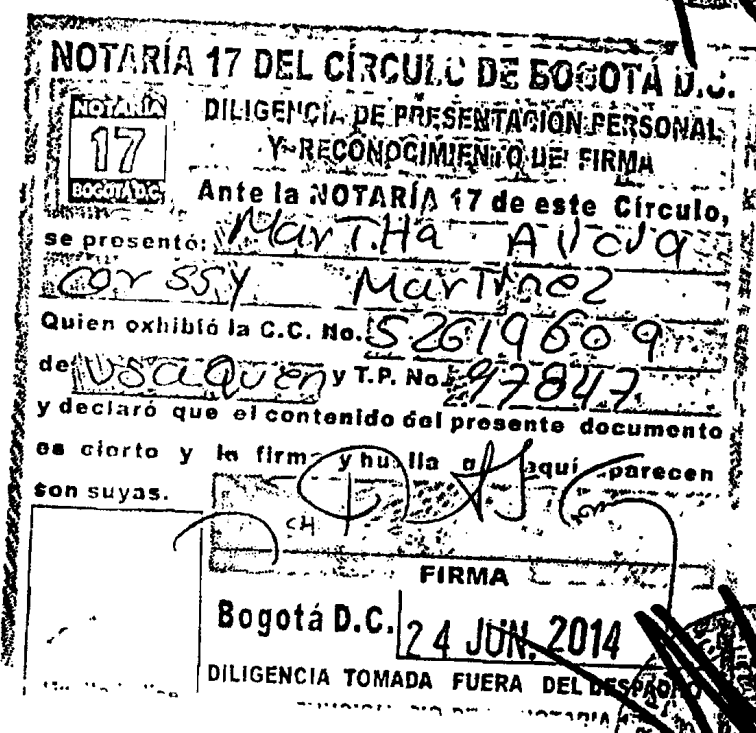 NOTARÍA 17 DEL CÍRCULO DE BOGOTÁ D.C.
NOTARÍA
17
BOGOTÁ D.C.
DILIGENCIA DE PRESENTACIÓN PERSONAL
Y RECONOCIMIENTO DE FIRMA
Ante la NOTARÍA 17 de este Círculo,
se presentó: MarTHa
Martinez
Quien exhibió la C.C. No. 52619609
de Usaquen y T.P. No. 97847
y declaró que el contenido del presente documento
es cierto y la firma y huella aquí aparecen
son suyas.
FIRMA
Bogotá D.C. 24 JUN. 2014
DILIGENCIA TOMADA FUERA DEL DESPACHO